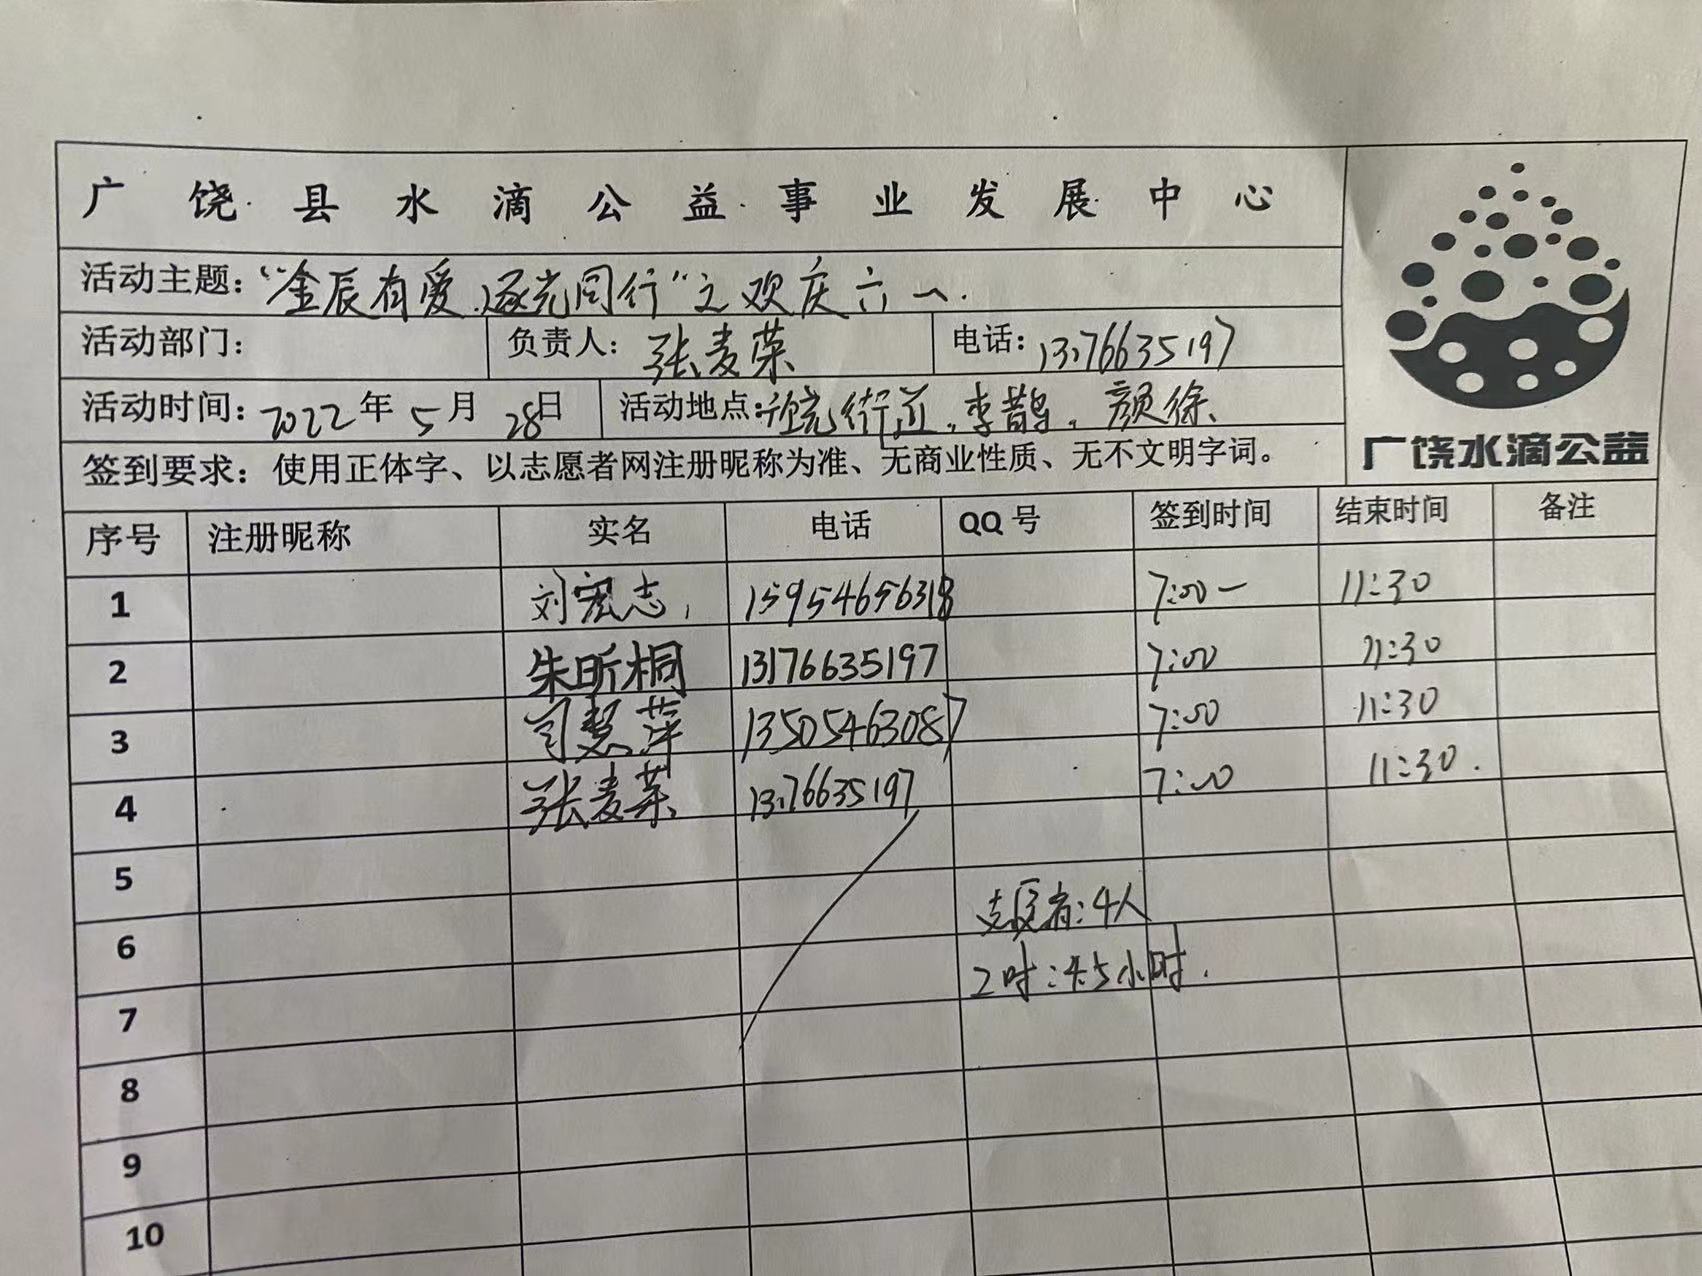 广饶县水滴公益事业发展中心
活动主题：“金辰有爱.逐光同行”之欢庆六一.
活动部门： 负责人：张麦荣 电话：13176635197
活动时间：2022年5月28日 活动地点：饶街道,李鹊,颜徐、
广饶水滴公益
签到要求：使用正体字、以志愿者网注册昵称为准、无商业性质、无不文明字词。
序号 注册昵称 实名 电话 QQ号 签到时间 结束时间 备注
1 刘宏志, 15954656318 7:00— 11:30
2 朱昕桐 13176635197 7:00 11:30
3 司慧萍 13505463087 7:00 11:30
4 张麦荣 13176635197 7:00 11:30.
5
志愿者:4人
6
工时:4.5小时.
7
8
9
10